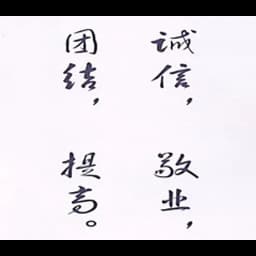 诚信，敬业，
团结，提高。